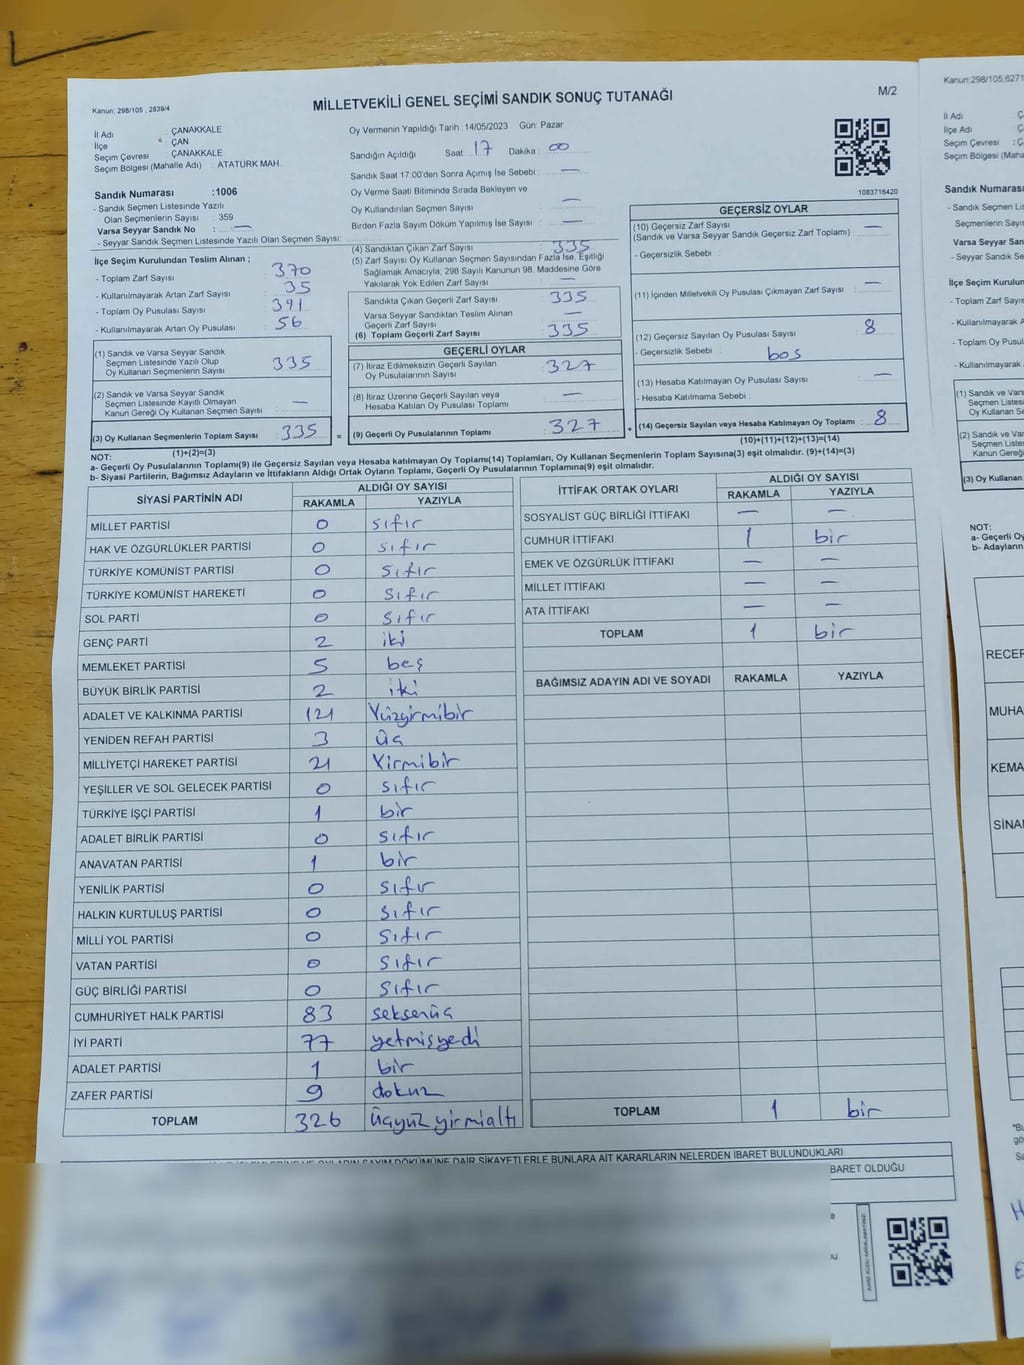 Kanun; 298/105 , 2839/4
MİLLETVEKİLİ GENEL SEÇİMİ SANDIK SONUÇ TUTANAĞI
M/2
İl Adı : ÇANAKKALE
İlçe : ÇAN
Seçim Çevresi : ÇANAKKALE
Seçim Bölgesi (Mahalle Adı) : ATATÜRK MAH.
Sandık Numarası :1006
- Sandık Seçmen Listesinde Yazılı
Olan Seçmenlerin Sayısı : 359
Varsa Seyyar Sandık No : —
- Seyyar Sandık Seçmen Listesinde Yazılı Olan Seçmen Sayısı:
Oy Vermenin Yapıldığı Tarih :14/05/2023 Gün: Pazar
Sandığın Açıldığı Saat : 17 Dakika : 00
Sandık Saat 17:00'den Sonra Açımış İse Sebebi : —
Oy Verme Saati Bitiminde Sırada Bekleyen ve
Oy Kullandırılan Seçmen Sayısı : —
Birden Fazla Sayım Döküm Yapılmış İse Sayısı : —
1083716420
İlçe Seçim Kurulundan Teslim Alınan ;
- Toplam Zarf Sayısı : 370
- Kullanılmayarak Artan Zarf Sayısı : 35
- Toplam Oy Pusulası Sayısı : 391
- Kullanılmayarak Artan Oy Pusulası : 56
(1) Sandık ve Varsa Seyyar Sandık
Seçmen Listesinde Yazılı Olup
Oy Kullanan Seçmenlerin Sayısı : 335
(2) Sandık ve Varsa Seyyar Sandık
Seçmen Listesinde Kayıtlı Olmayan
Kanun Gereği Oy Kullanan Seçmen Sayısı : —
(3) Oy Kullanan Seçmenlerin Toplam Sayısı : 335
(1)+(2)=(3)
(4) Sandıktan Çıkan Zarf Sayısı : 335
(5) Zarf Sayısı Oy Kullanan Seçmen Sayısından Fazla İse, Eşitliği
Sağlamak Amacıyla; 298 Sayılı Kanunun 98. Maddesine Göre
Yakılarak Yok Edilen Zarf Sayısı : —
Sandıkta Çıkan Geçerli Zarf Sayısı : 335
Varsa Seyyar Sandıktan Teslim Alınan
Geçerli Zarf Sayısı : —
(6) Toplam Geçerli Zarf Sayısı : 335
GEÇERLİ OYLAR
(7) İtiraz Edilmeksizin Geçerli Sayılan
Oy Pusulalarının Sayısı : 327
(8) İtiraz Üzerine Geçerli Sayılan veya
Hesaba Katılan Oy Pusulası Toplamı : —
= (9) Geçerli Oy Pusulalarının Toplamı : 327
GEÇERSİZ OYLAR
(10) Geçersiz Zarf Sayısı
(Sandık ve Varsa Seyyar Sandık Geçersiz Zarf Toplamı) : —
- Geçersizlik Sebebi :
(11) İçinden Milletvekili Oy Pusulası Çıkmayan Zarf Sayısı : —
(12) Geçersiz Sayılan Oy Pusulası Sayısı : 8
- Geçersizlik Sebebi : boş
(13) Hesaba Katılmayan Oy Pusulası Sayısı : —
- Hesaba Katılmama Sebebi :
+ (14) Geçersiz Sayılan veya Hesaba Katılmayan Oy Toplamı : 8
(10)+(11)+(12)+(13)=(14)
NOT:
a- Geçerli Oy Pusulalarının Toplamı(9) ile Geçersiz Sayılan veya Hesaba katılmayan Oy Toplamı(14) Toplamları, Oy Kullanan Seçmenlerin Toplam Sayısına(3) eşit olmalıdır. (9)+(14)=(3)
b- Siyasi Partilerin, Bağımsız Adayların ve İttifakların Aldığı Ortak Oyların Toplamı, Geçerli Oy Pusulalarının Toplamına(9) eşit olmalıdır.
SİYASİ PARTİNİN ADI ALDIĞI OY SAYISI
RAKAMLA YAZIYLA
MİLLET PARTİSİ 0 sıfır
HAK VE ÖZGÜRLÜKLER PARTİSİ 0 sıfır
TÜRKİYE KOMÜNİST PARTİSİ 0 sıfır
TÜRKİYE KOMÜNİST HAREKETİ 0 sıfır
SOL PARTİ 0 sıfır
GENÇ PARTİ 2 iki
MEMLEKET PARTİSİ 5 beş
BÜYÜK BİRLİK PARTİSİ 2 iki
ADALET VE KALKINMA PARTİSİ 121 Yüzyirmibir
YENİDEN REFAH PARTİSİ 3 üç
MİLLİYETÇİ HAREKET PARTİSİ 21 Yirmibir
YEŞİLLER VE SOL GELECEK PARTİSİ 0 sıfır
TÜRKİYE İŞÇİ PARTİSİ 1 bir
ADALET BİRLİK PARTİSİ 0 sıfır
ANAVATAN PARTİSİ 1 bir
YENİLİK PARTİSİ 0 sıfır
HALKIN KURTULUŞ PARTİSİ 0 sıfır
MİLLİ YOL PARTİSİ 0 sıfır
VATAN PARTİSİ 0 sıfır
GÜÇ BİRLİĞİ PARTİSİ 0 sıfır
CUMHURİYET HALK PARTİSİ 83 seksenüç
İYİ PARTİ 77 yetmişyedi
ADALET PARTİSİ 1 bir
ZAFER PARTİSİ 9 dokuz
TOPLAM 326 üçyüzyirmialtı
İTTİFAK ORTAK OYLARI ALDIĞI OY SAYISI
RAKAMLA YAZIYLA
SOSYALİST GÜÇ BİRLİĞİ İTTİFAKI — —
CUMHUR İTTİFAKI 1 bir
EMEK VE ÖZGÜRLÜK İTTİFAKI — —
MİLLET İTTİFAKI — —
ATA İTTİFAKI — —
TOPLAM 1 bir
BAĞIMSIZ ADAYIN ADI VE SOYADI RAKAMLA YAZIYLA
TOPLAM 1 bir
SAYIM DÖKÜMÜNE DAİR ŞİKAYETLERLE BUNLARA AİT KARARLARIN NELERDEN İBARET BULUNDUKLARI
İBARET OLDUĞU
Kanun;298/105;6271
İl Adı
İlçe Adı
Seçim Çevresi
Seçim Bölgesi (Maha
Sandık Numarası
- Sandık Seçmen Lis
Seçmenlerin Sayısı
Varsa Seyyar San
- Seyyar Sandık Se
İlçe Seçim Kurulu
- Toplam Zarf Sayıs
- Kullanılmayarak
- Toplam Oy Pusul
- Kullanılmayarak
(1) Sandık ve Varsa
Seçmen Listes
Oy Kullanan S
(2) Sandık ve Vars
Seçmen Liste
Kanun Gereği
(3) Oy Kullanan
NOT:
a- Geçerli Oy
b- Adayların
RECEP
MUHA
KEMA
SİNAN